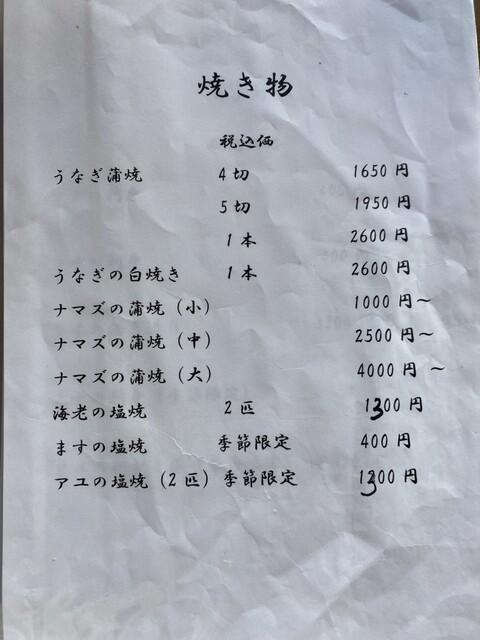 焼き物
税込価
うなぎ蒲焼 4切 1650円
5切 1950円
1本 2600円
うなぎの白焼き 1本 2600円
ナマズの蒲焼（小） 1000円～
ナマズの蒲焼（中） 2500円～
ナマズの蒲焼（大） 4000円 ～
海老の塩焼 2匹 1300円
ますの塩焼 季節限定 400円
アユの塩焼（2匹）季節限定 1300円